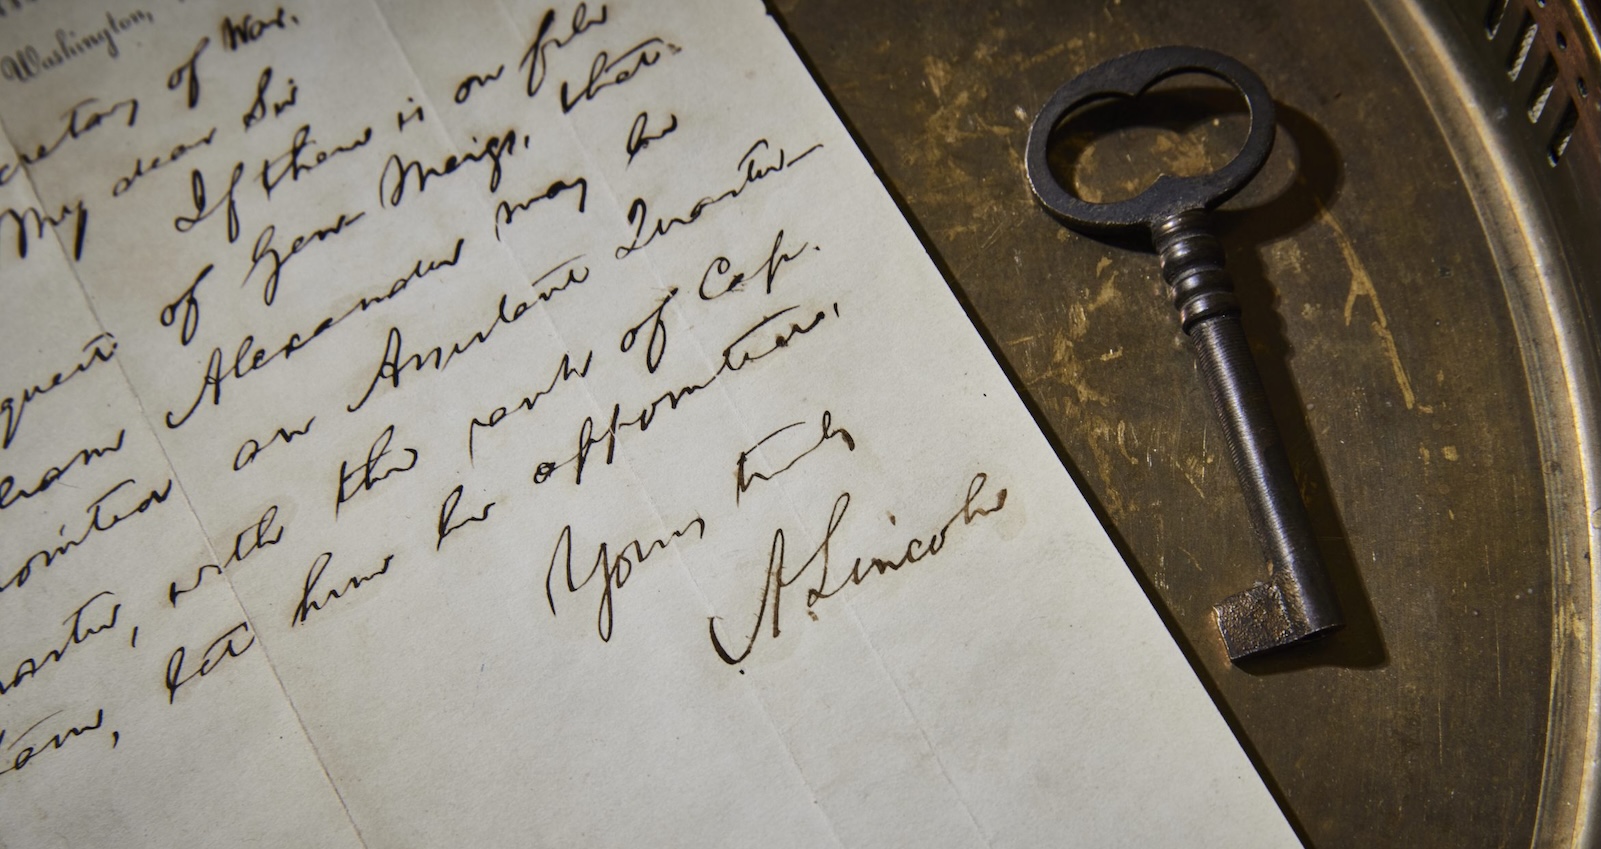 Washington,
cretary of War.
My dear Sir
If there is on file
quest of Gen. Meigs, that
liam Alexander may be
pointed an Assistant Quarter-
master, with the rank of Cap.
tain, let him be appointed,
Yours truly
A. Lincoln